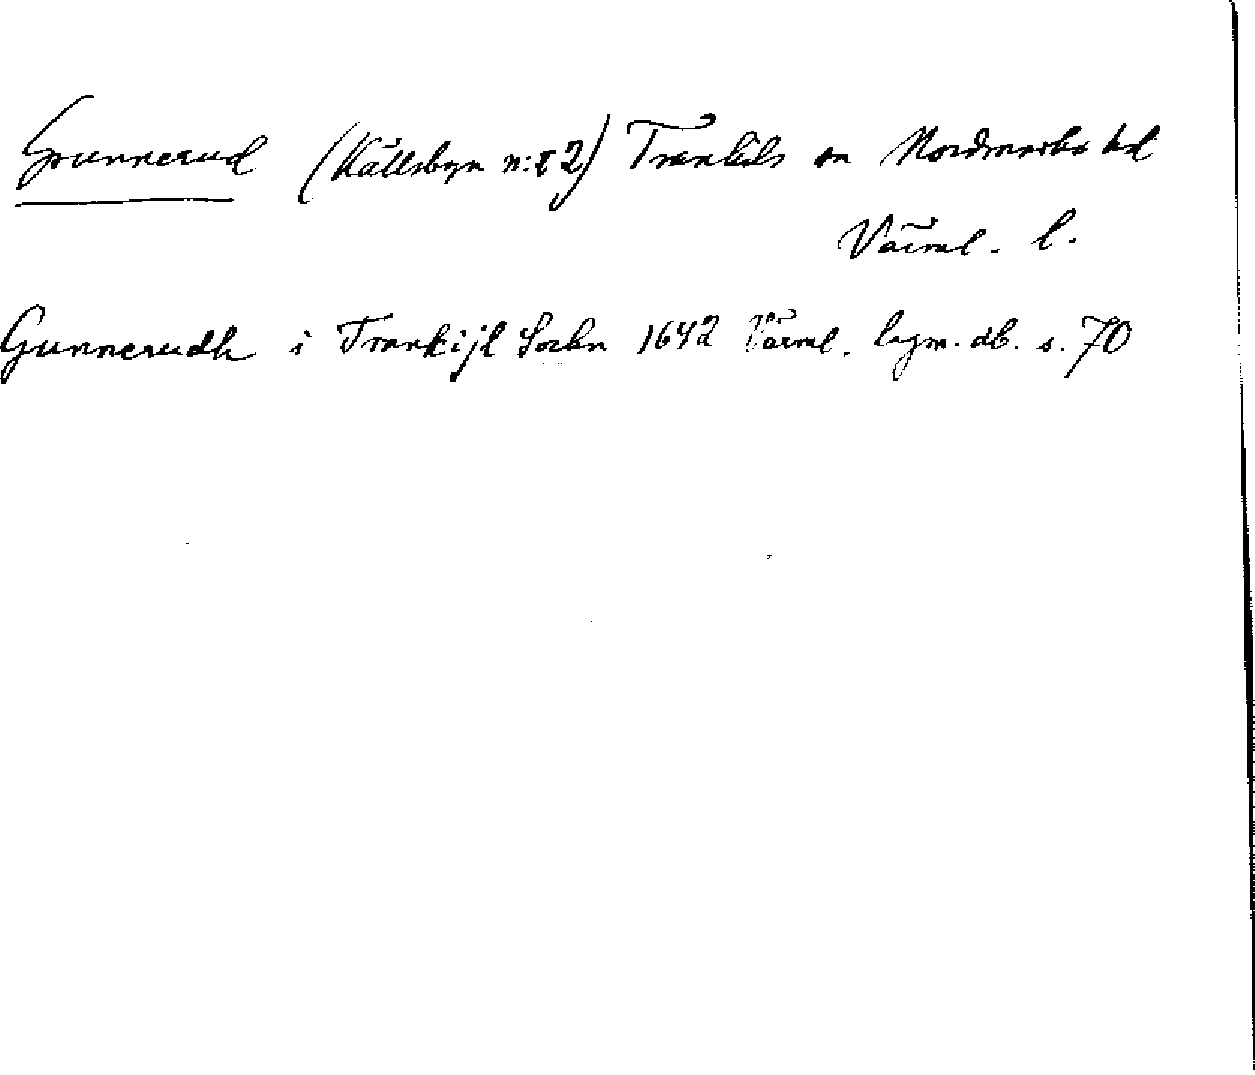 Gunnerud (Källsbyn n:r 2) Trankils sn Nordmarks hd
Värml. l.
Gunnerudh i Trankijl Sochn 1642 Värml. lagm. db. s. 70